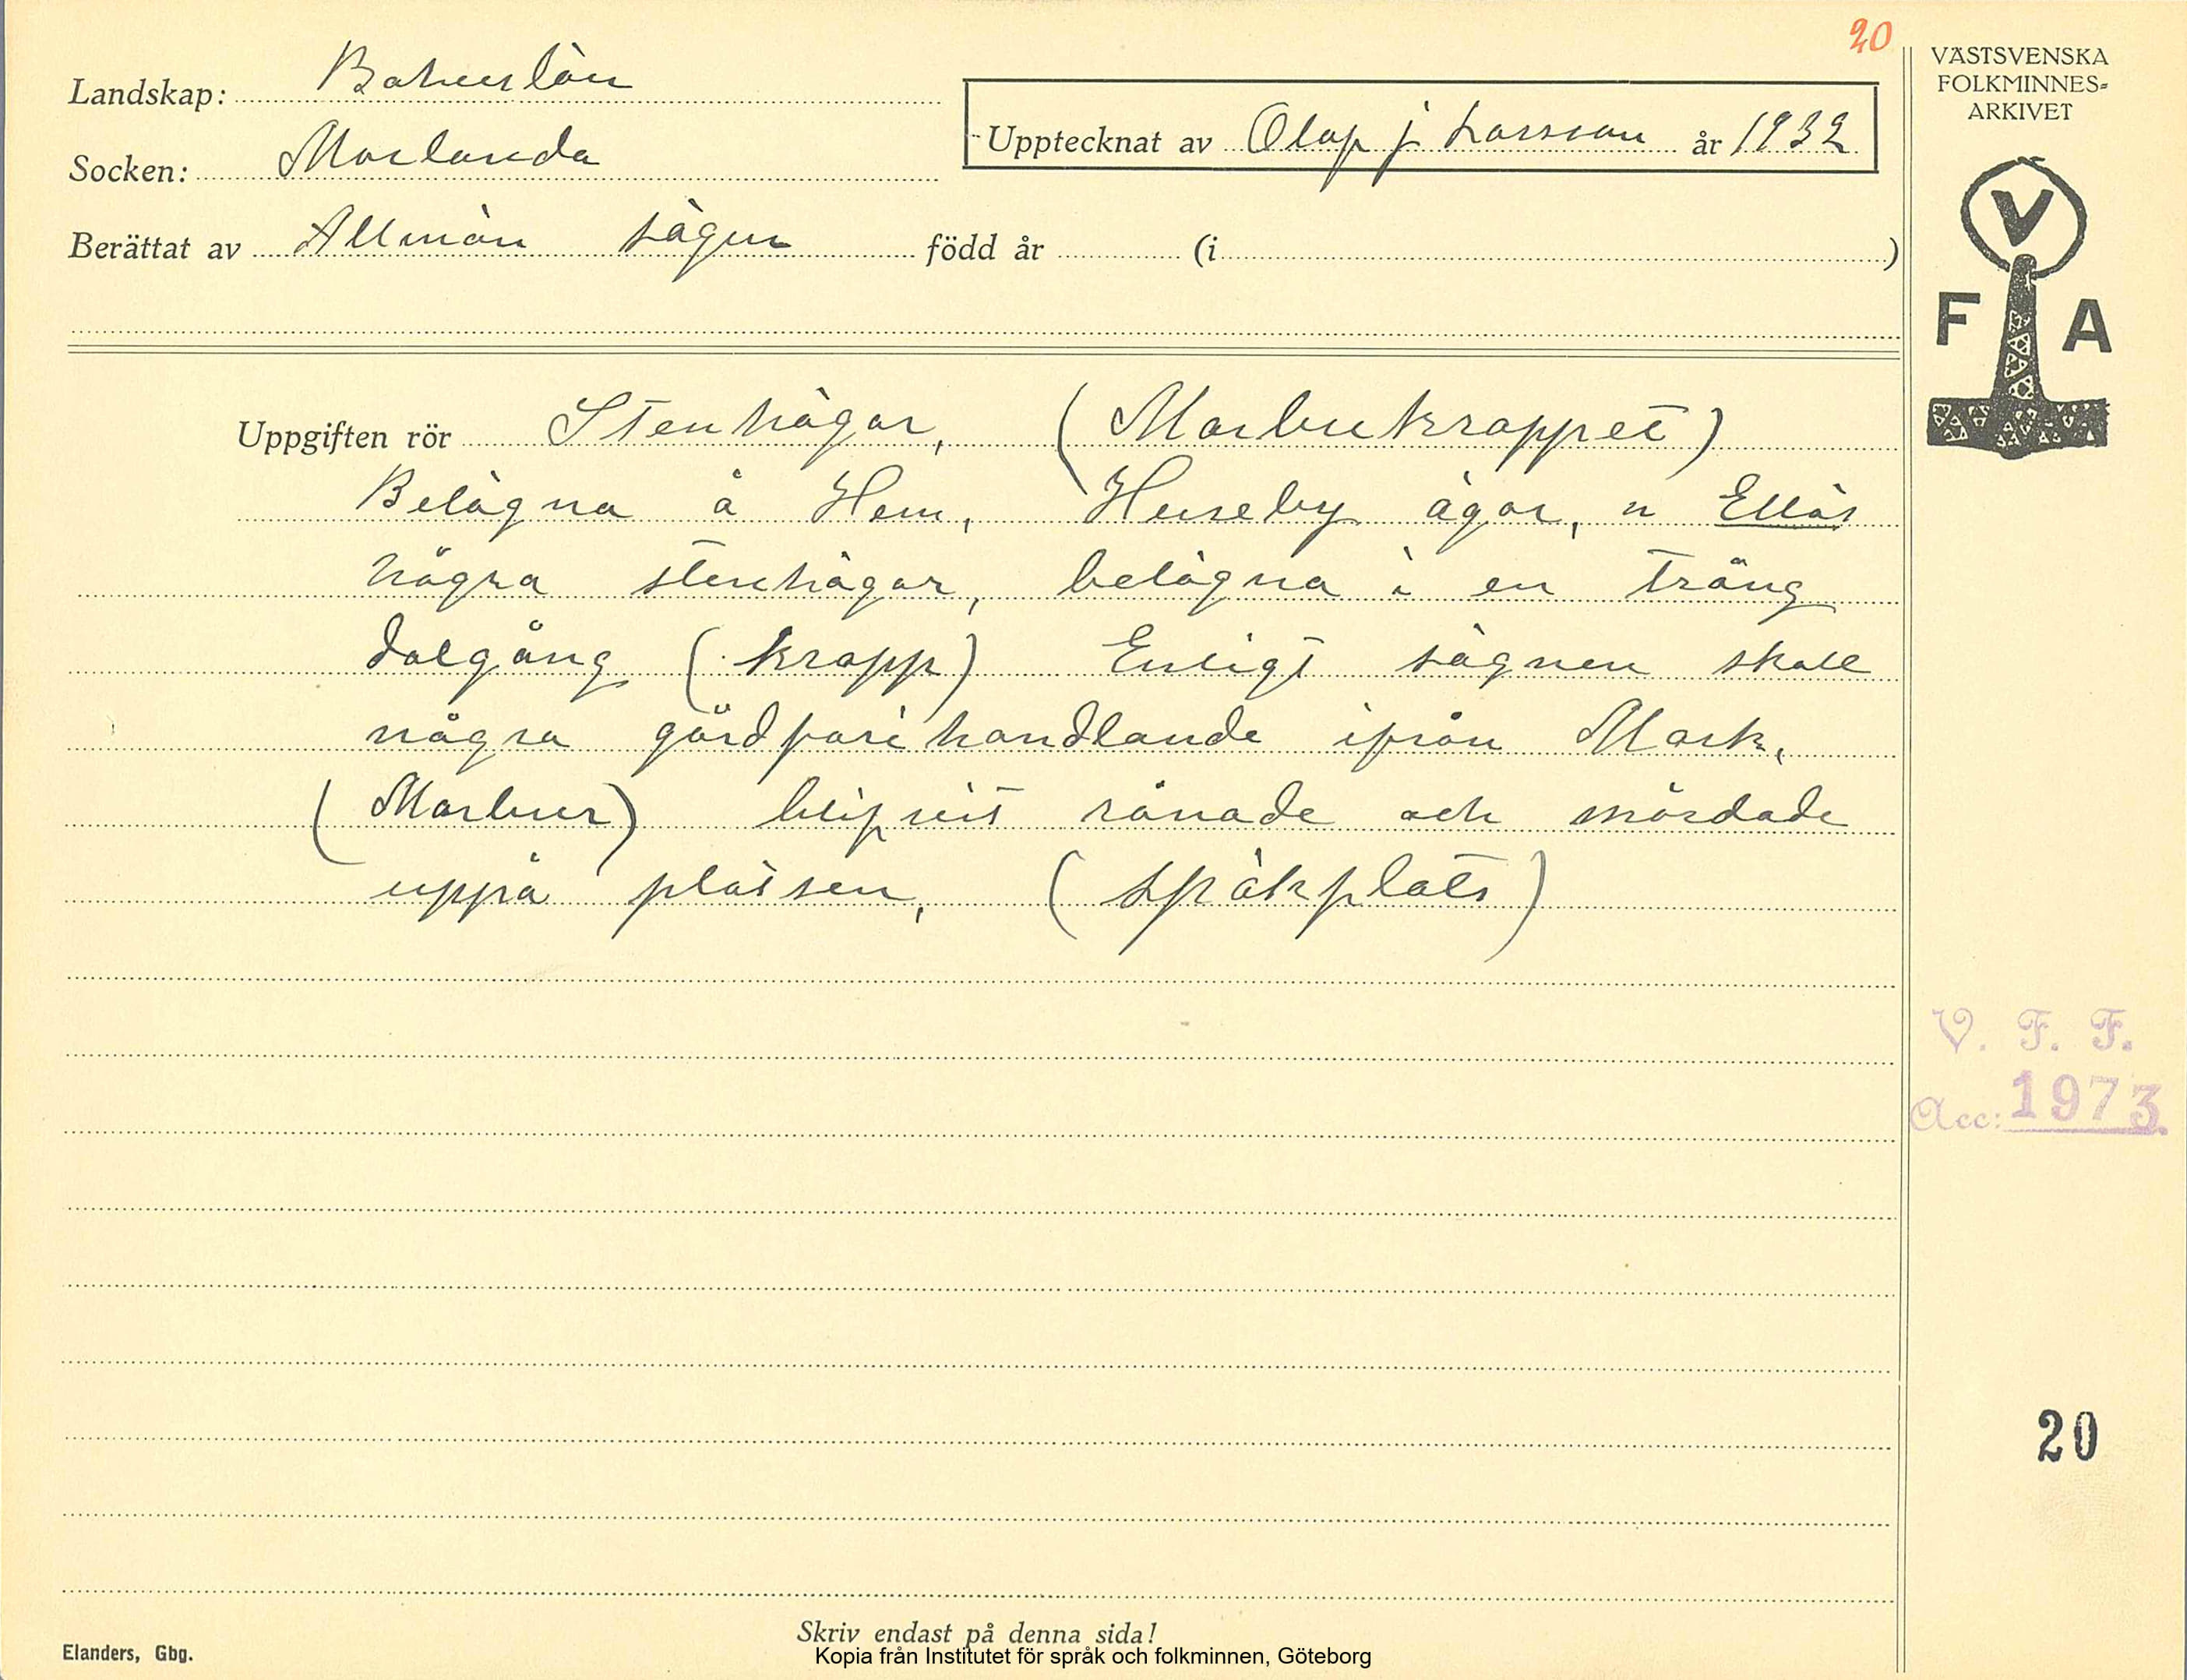 20
VÄSTSVENSKA
FOLKMINNES-
ARKIVET
Landskap: Bohuslän
Upptecknat av Olaf j Larsson år 1932
Socken: Morlanda
Berättat av Allmän sägen född år (i )
V
F A
Uppgiften rör Stenhögar, (Marbukroppet)
Belägna å Hem, Huseby ägor, n Ellös
Några stenhögar, belägna i en trång
dalgång (kropp) Enligt sägnen skall
några gårdfarihandlande ifrån Mark,
(Marbuer) blifvit rånade och mördade
uppå platsen, (spökplats)
V. F. F.
Acc: 1973.
20
Skriv endast på denna sida!
Elanders, Gbg.
Kopia från Institutet för språk och folkminnen, Göteborg